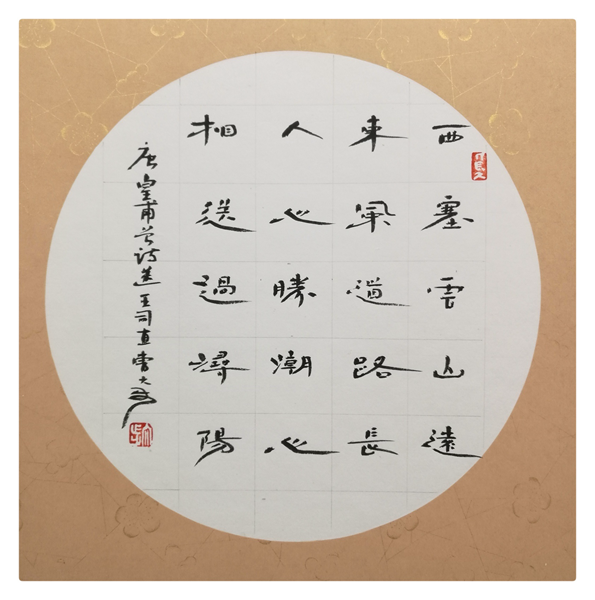 西塞雲山遠
東風道路長
人心勝潮心
相送過潯陽
唐皇甫曾诗送王司直